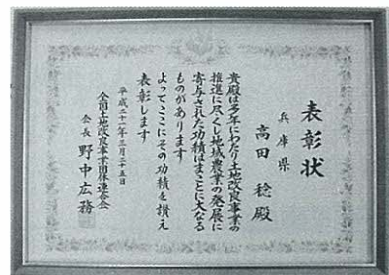 表彰状
兵庫県
高田 稔 殿
貴殿は多年にわたり土地改良事業の
推進に尽くし地域農業の発展に
寄与された功績はまことに大なる
ものがあります
よってここにその功績を讃え
表彰します
平成二十一年三月二十五日
全国土地改良事業団体連合会
会長 野中広務